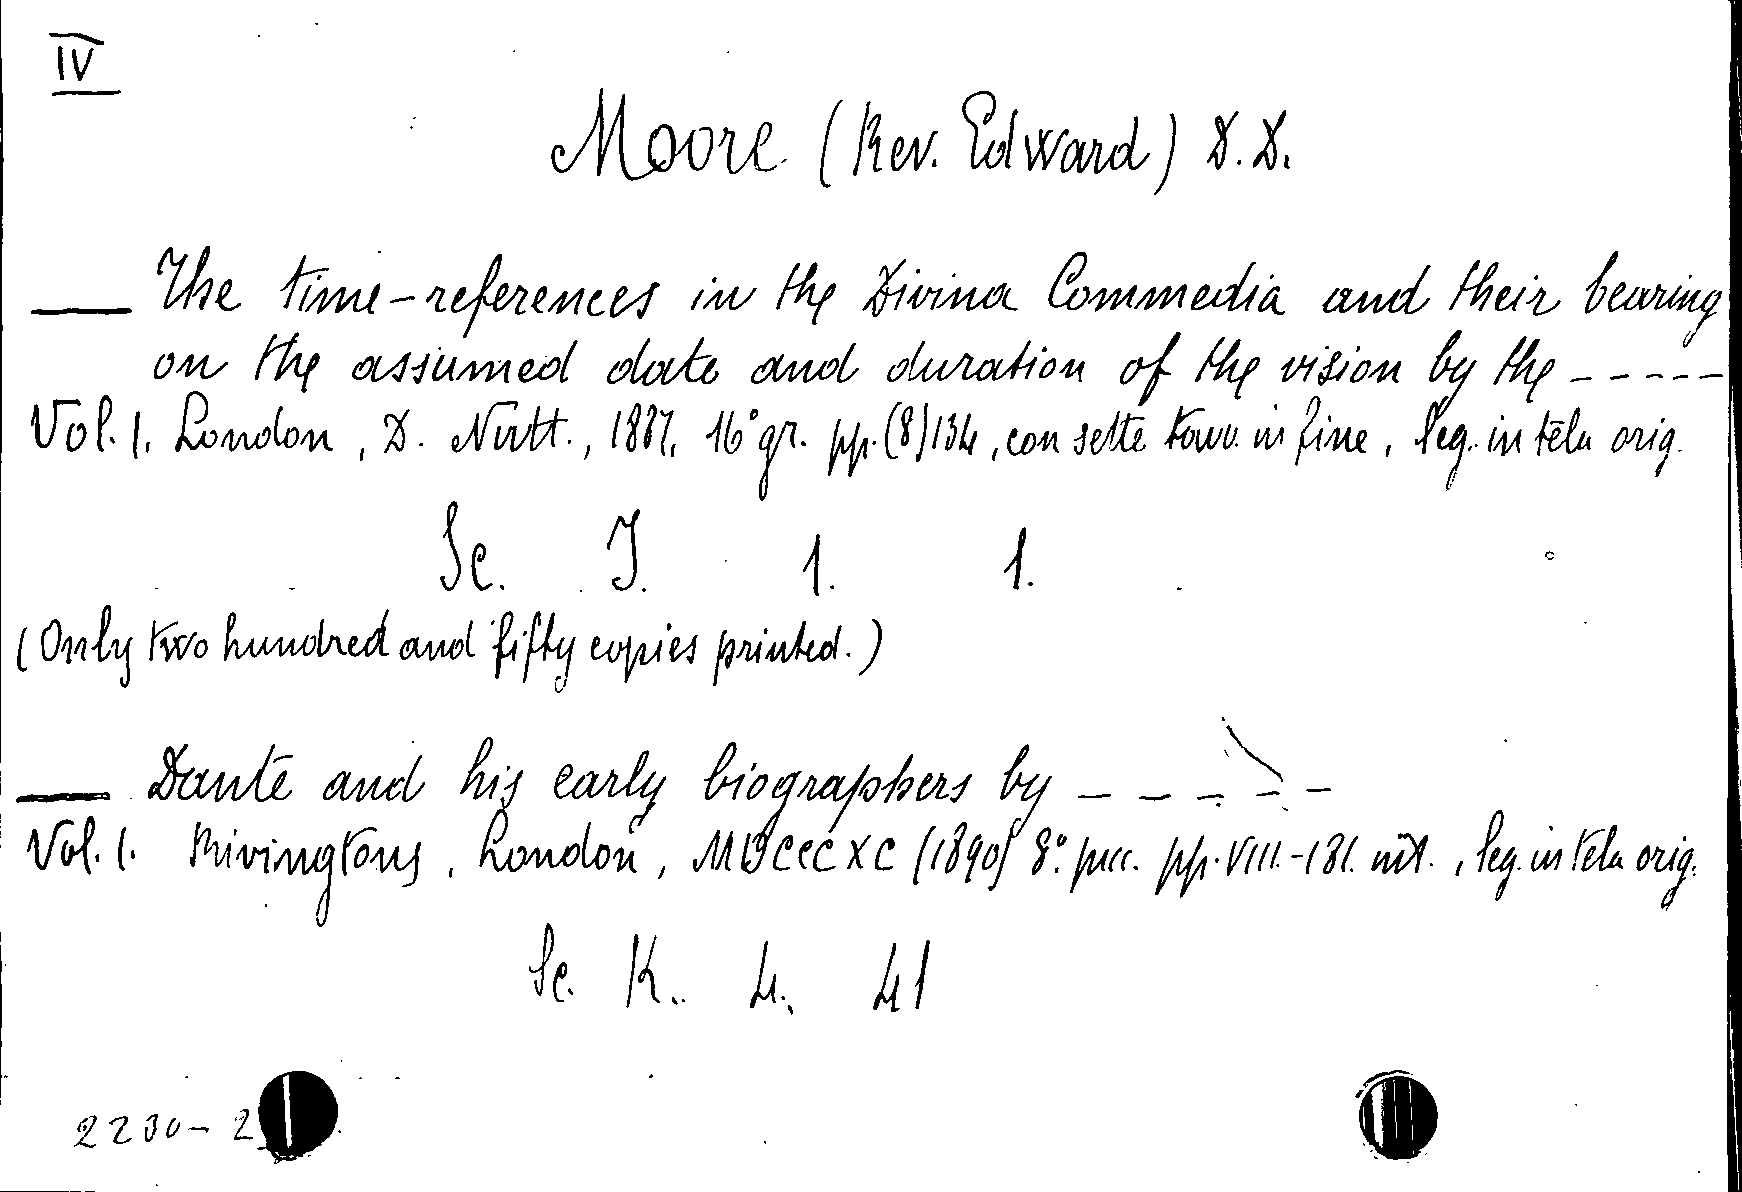 IV
Moore (Rev. Edward) D.D.
—— The time-references in the Divina Commedia and their bearing
on the assumed date and duration of the vision by the -----
Vol. 1. London, D. Nutt., 1887, 16° gr. pp. (8) 134, con sette tavv. in fine, leg. in tela orig.
Sc. J. 1. 1.
(Only two hundred and fifty copies printed.)
—— Dante and his early biographers by -----
Vol. 1. Rivingtons, London, MDCCCXC (1890) 8° picc. pp. VIII.-181. nñt., leg. in tela orig.
Sc. K. 4. 41
2230-2